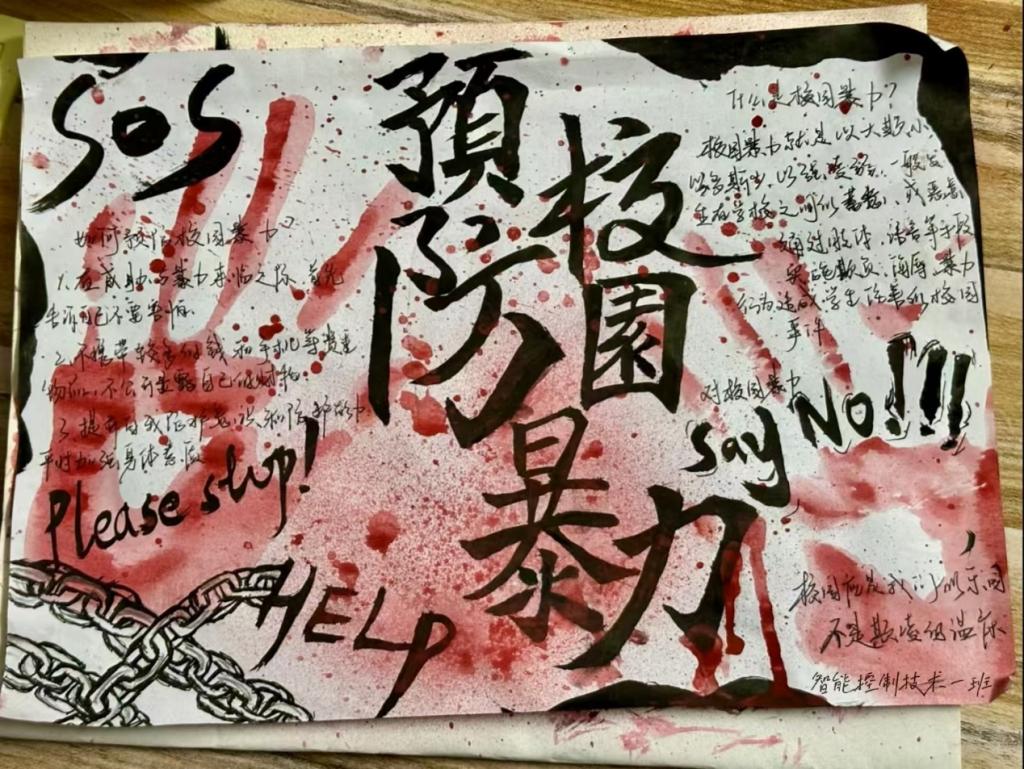 SOS
預防
校園
暴力
如何预防校园暴力?
1.在威胁与暴力来临之际,首先
告诉自己不要害怕.
2.不携带较多的钱和手机等贵重
物品,不公开显露自己的财物.
3.提升自我保护意识和防护能力
平时加强身体
Please stop!
HELP
什么是校园暴力?
校园暴力就是以大欺小
以多欺少,以强凌弱,一般发
生在学校之间的蓄意,或恶意
通过肢体,语言等手段
实施欺负,侮辱,暴力
行为造成学生伤害的校园
事件
对校园暴力
say No!!!
校园应是我们的乐园
不是欺凌的温床
智能控制技术一班